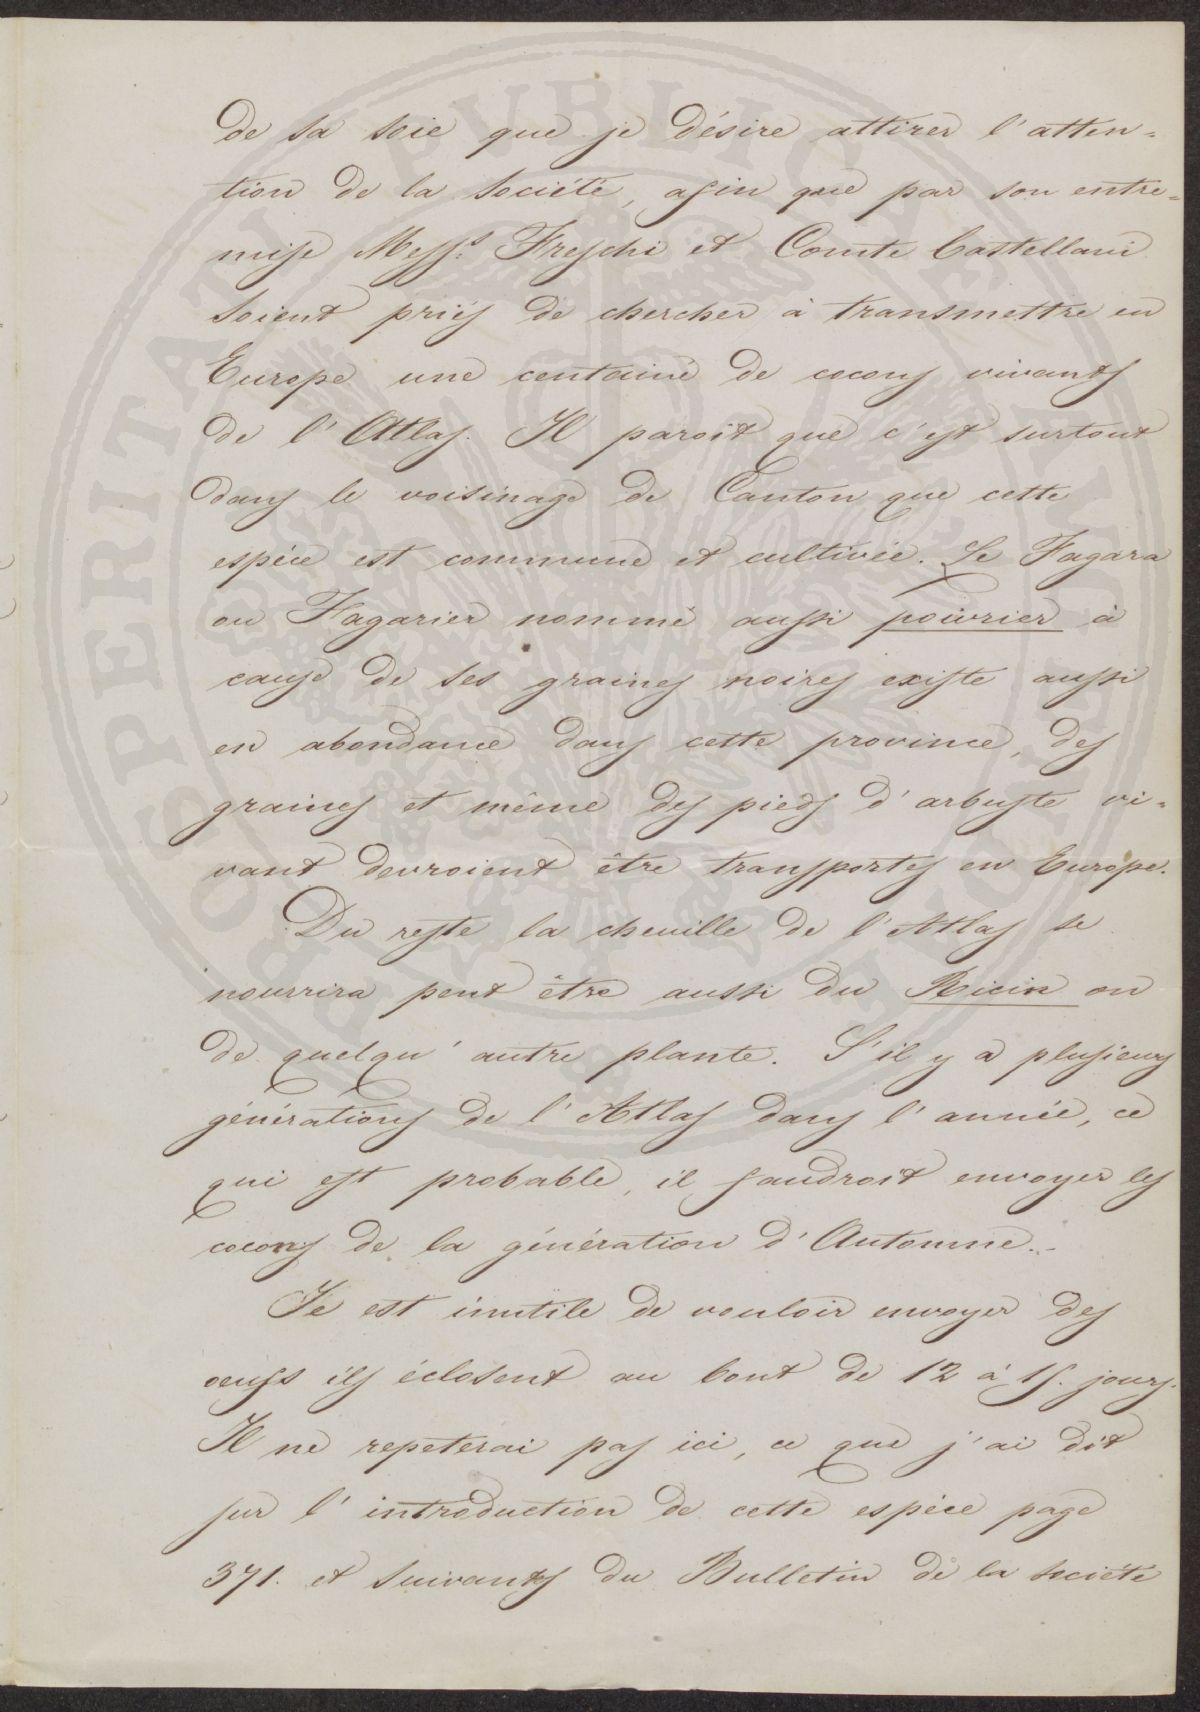 de sa soie que je désire attirer l'atten=
tion de la Société, afin que par son entre=
mise Mess.s Freschi et Comte Castellani
soient priés de chercher à transmettre en
Europe une centaine de cocons vivants
de l'Atlas. Il paroit que c'est surtout
dans le voisinage de Canton que cette
espéce est commune et cultivée. Le Fagara
ou Fagarier nommé aussi poivrier à
cause de ses graines noires existe aussi
en abondance dans cette province, des
graines et même des pieds d'arbuste vi=
vant devroient être transportés en Europe.
Du reste la chenille de l'Atlas se
nourrira peut être aussi du Ricin ou
de quelqu'autre plante. S'il y a plusieurs
générations de l'Atlas dans l'année, ce
qui est probable, il faudroit envoyer les
cocons de la génération d'Automne.
Ie est inutile de vouloir envoyer des
oeufs ils éclosent au bout de 12 à 15. jours.
Il ne repeterai pas ici, ce que j'ai dit
sur l'introduction de cette espéce page
371. et suivantes du Bulletin de la société
PROSPERITATI PVBLICAE AVGENDAE